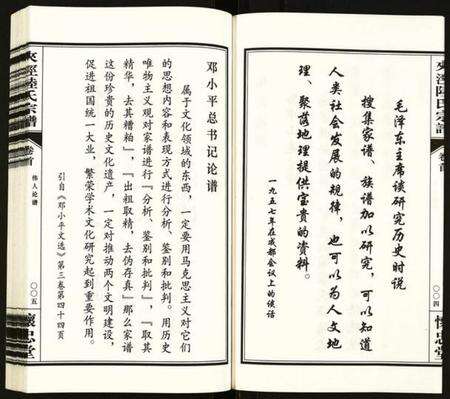 毛泽东主席谈研究历史时说
搜集家谱、族谱加以研究，可以知道
人类社会发展的规律，也可以为人文地
理、聚落地理提供宝贵的资料。
一九五七年在成都会议上的谈话
卷首
〇〇四
怀忠堂
邓小平总书记论谱
属于文化领域的东西，一定要用马克思主义对它们
的思想内容和表现方式进行分析、鉴别和批判。用历史
唯物主义观对家谱进行『分析、鉴别和批判』，『取其
精华，去其糟粕』，『出祖取精，去伪存真』那么家谱
这份珍贵的历史文化遗产，一定对推动两个文明建设，
促进祖国统一大业，繁荣学术文化研究起到重要作用。
引自《邓小平文选》第三卷第四十四页
夾涇陸氏宗譜
卷首
伟人论谱
〇〇五
懷忠堂